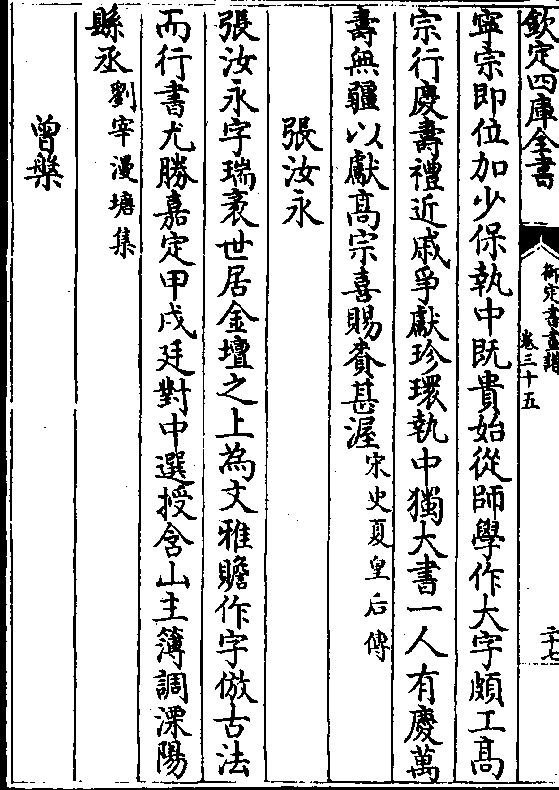 欽定四庫全書
御定書畫譜
卷三十五
二十七
寧宗即位加少保執中既貴始從師學作大字頗工高
宗行慶壽禮近戚爭獻珍環執中獨大書一人有慶萬
壽無疆以獻高宗喜賜賚甚渥宋史夏皇后傳
張汝永
張汝永字瑞袤世居金壇之上為文雅贍作字倣古法
而行書尤勝嘉定甲戌廷對中選授含山主簿調溧陽
縣丞劉宰漫塘集
曾槃